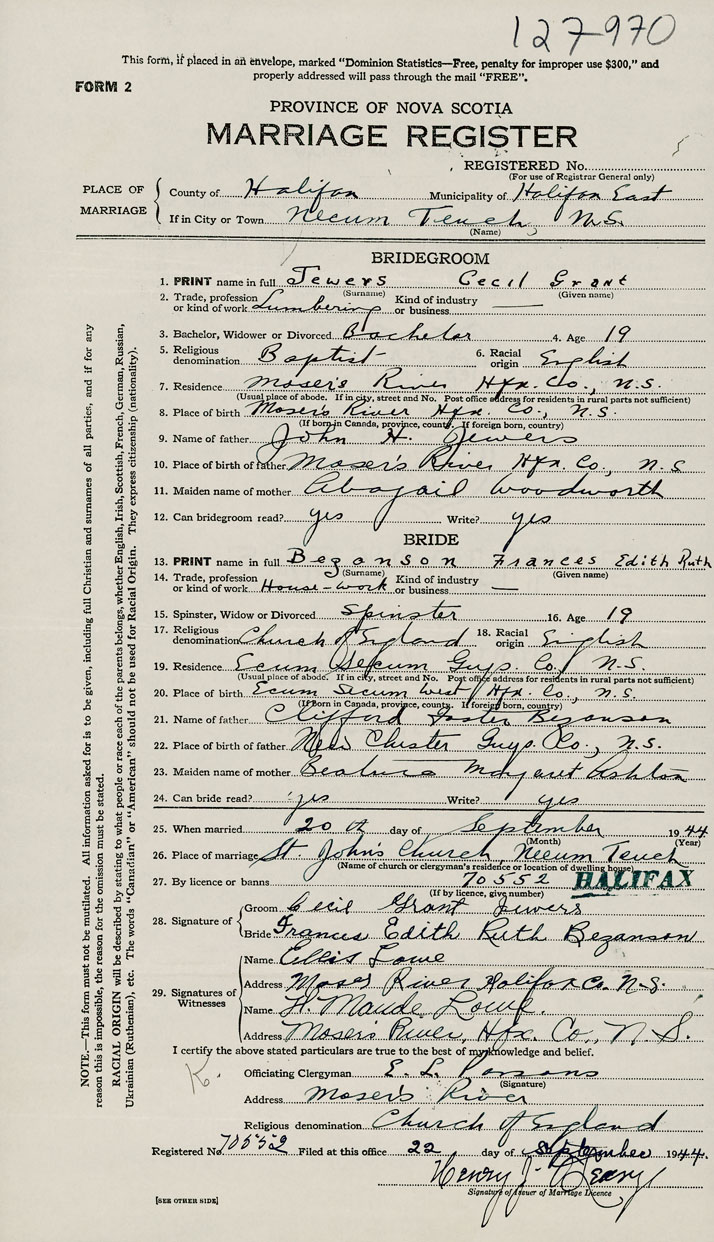 127970
This form, if placed in an envelope, marked "Dominion Statistics—Free, penalty for improper use $300," and
properly addressed will pass through the mail "FREE".
FORM 2
PROVINCE OF NOVA SCOTIA
MARRIAGE REGISTER
REGISTERED No.
(For use of Registrar General only)
PLACE OF MARRIAGE
County of Halifax Municipality of Halifax East
If in City or Town Necum Teuch, N.S.
(Name)
BRIDEGROOM
1. PRINT name in full Jewers Cecil Grant
(Surname) (Given name)
2. Trade, profession or kind of work Lumbering Kind of industry or business —
3. Bachelor, Widower or Divorced Bachelor 4. Age 19
5. Religious denomination Baptist 6. Racial origin English
7. Residence Moser's River Hfx. Co., N.S.
(Usual place of abode. If in city, street and No. Post office address for residents in rural parts not sufficient)
8. Place of birth Moser's River Hfx. Co., N.S.
(If born in Canada, province, county. If foreign born, country)
9. Name of father John H. Jewers
10. Place of birth of father Moser's River Hfx. Co., N.S
11. Maiden name of mother Abagail Woodworth
12. Can bridegroom read? yes Write? yes
BRIDE
13. PRINT name in full Bezanson Frances Edith Ruth
(Surname) (Given name)
14. Trade, profession or kind of work House-work Kind of industry or business —
15. Spinster, Widow or Divorced Spinster 16. Age 19
17. Religious denomination Church of England 18. Racial origin English
19. Residence Ecum Secum Guys. Co., N.S.
(Usual place of abode. If in city, street and No. Post office address for residents in rural parts not sufficient)
20. Place of birth Ecum Secum West Hfx. Co., N.S.
(If Born in Canada, province, county. If foreign born, country)
21. Name of father Clifford Foster Bezanson
22. Place of birth of father New Chester Guys. Co., N.S.
23. Maiden name of mother Beatrice Margaret Ashton
24. Can bride read? yes Write? yes
25. When married 20 th day of September 1944
(Month) (Year)
26. Place of marriage St. John's Church, Necum Teuch
(Name of church or clergyman's residence or location of dwelling house)
27. By licence or banns 70552 HALIFAX
(If by licence, give number)
28. Signature of
Groom Cecil Grant Jewers
Bride Frances Edith Ruth Bezanson
29. Signatures of Witnesses
Name Ellis Lowe
Address Moser River Halifax Co. N.S.
Name H. Maude Lowe.
Address Moser's River, Hfx. Co., N.S.
I certify the above stated particulars are true to the best of my knowledge and belief.
K.
Officiating Clergyman E. L. Parsons
(Signature)
Address Moser's River
Religious denomination Church of England
Registered No. 70552 Filed at this office 22 day of September 1944.
Henry J.
Signature of Issuer of Marriage Licence
[SEE OTHER SIDE]
NOTE.—This form must not be mutilated. All information asked for is to be given, including full Christian and surnames of all parties, and if for any
reason this is impossible, the reason for the omission must be stated.
RACIAL ORIGIN will be described by stating to what people or race each of the parents belongs, whether English, Irish, Scottish, French, German, Russian,
Ukrainian (Ruthenian), etc. The words "Canadian" or "American" should not be used for Racial Origin. They express citizenship (nationality).